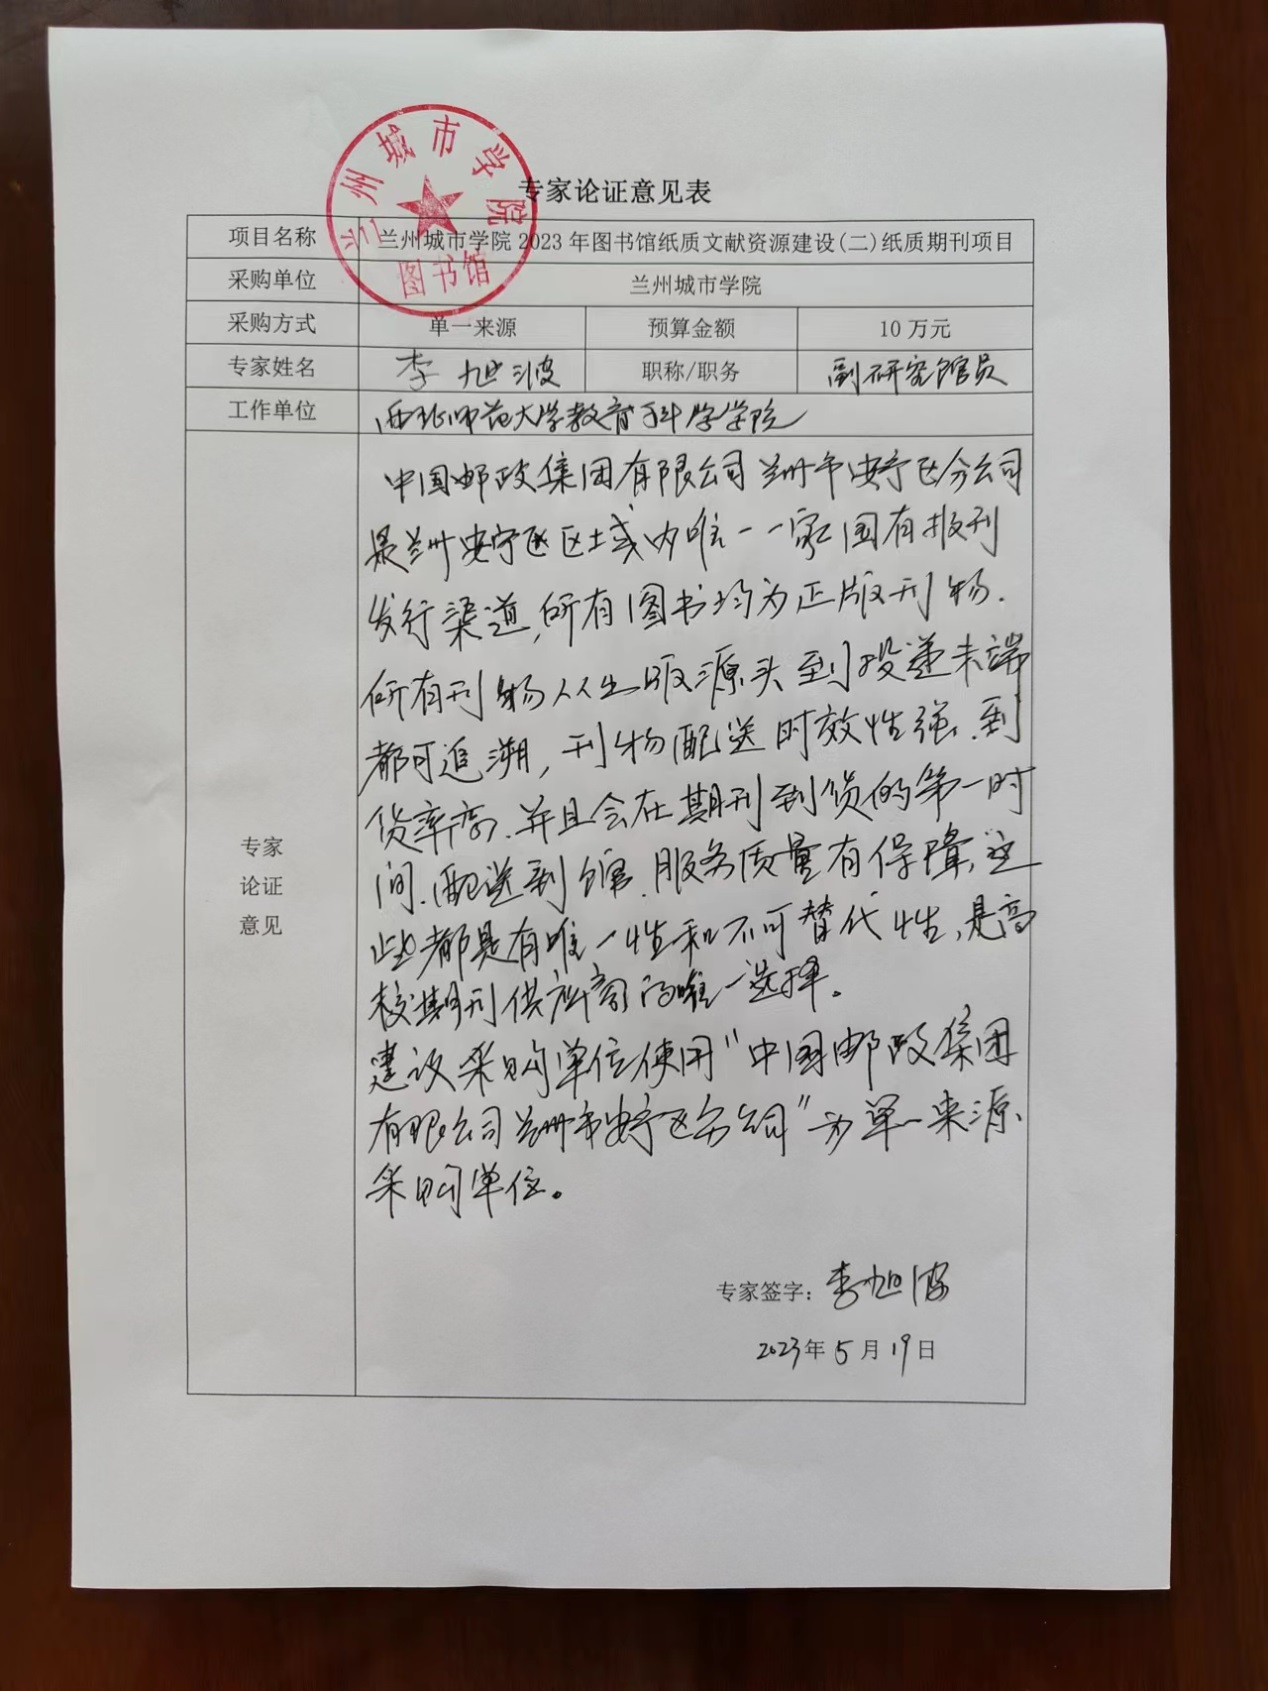 兰州城市学院
图书馆
专家论证意见表
项目名称 兰州城市学院2023年图书馆纸质文献资源建设(二)纸质期刊项目
采购单位 兰州城市学院
采购方式 单一来源 预算金额 10万元
专家姓名 李旭波 职称/职务 副研究馆员
工作单位 西北师范大学教育科学学院
专家
论证
意见
中国邮政集团有限公司兰州市安宁区分公司
是兰州安宁区区域内唯一一家国有报刊
发行渠道,所有图书均为正版刊物.
所有刊物从出版源头到投递末端
都可追溯,刊物配送时效性强、到
货率高、并且会在期刊到货的第一时
间、配送到馆、服务质量有保障,这
些都具有唯一性和不可替代性、是高
校期刊供应商的唯一选择。
建议采购单位使用"中国邮政集团
有限公司兰州市安宁区分公司"为单一来源
采购单位。
专家签字:李旭波
2023年5月19日